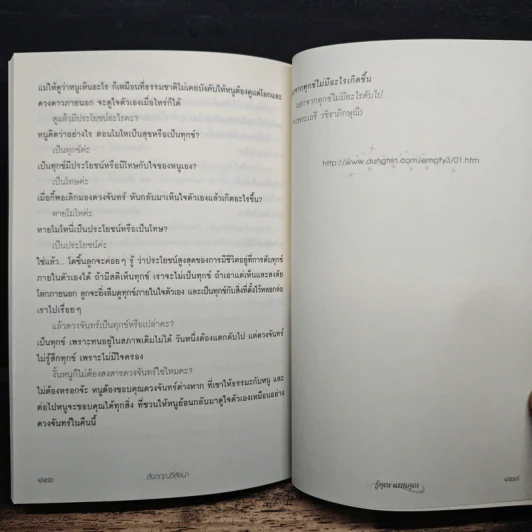 แม่ให้ดูว่าหนูเห็นอะไร ก็เหมือนที่ธรรมชาติไม่เคยบังคับให้หนูต้องดูแต่โลกและ
ดวงดาวภายนอก จะดูใจตัวเองเมื่อไหร่ก็ได้
ดูแล้วมีประโยชน์อะไรคะ?
หนูคิดว่าอย่างไร ตอนโมโหเป็นสุขหรือเป็นทุกข์?
เป็นทุกข์ค่ะ
เป็นทุกข์มีประโยชน์หรือมีโทษกับใจของหนูเอง?
เป็นโทษค่ะ
เมื่อกี้พอเลิกมองดวงจันทร์ หันกลับมาเห็นใจตัวเองแล้วเกิดอะไรขึ้น?
หายโมโหค่ะ
หายโมโหนี่เป็นประโยชน์หรือเป็นโทษ?
เป็นประโยชน์ค่ะ
ใช่แล้ว... โตขึ้นลูกจะค่อยๆ รู้ ว่าประโยชน์สูงสุดของการมีชีวิตอยู่ที่การดับทุกข์
ภายในตัวเองได้ ถ้ามีสติเห็นทุกข์ เราจะไม่เป็นทุกข์ ถ้าเอาแต่เห็นและสงสัย
โลกภายนอก ลูกจะยิ่งลืมดูทุกข์ภายในใจตัวเอง และเป็นทุกข์กับสิ่งที่ตั้งไว้หลอกล่อ
เราไปเรื่อยๆ
แล้วดวงจันทร์เป็นทุกข์หรือเปล่าคะ?
เป็นทุกข์ เพราะทนอยู่ในสภาพเดิมไม่ได้ วันหนึ่งต้องแตกดับไป แต่ดวงจันทร์
ไม่รู้สึกทุกข์ เพราะไม่มีใจครอง
งั้นหนูก็ไม่ต้องสงสารดวงจันทร์ใช่ไหมคะ?
ไม่ต้องหรอกจ้ะ หนูต้องขอบคุณดวงจันทร์ต่างหาก ที่เขาให้ธรรมะกับหนู และ
ต่อไปหนูจะขอบคุณได้ทุกสิ่ง ที่ชวนให้หนูย้อนกลับมาดูใจตัวเองเหมือนอย่าง
ดวงจันทร์ในคืนนี้
จากทุกข์ไม่มีอะไรเกิดขึ้น
นอกจากทุกข์ไม่มีอะไรดับไป
วชิราภิกษุณี)
http://www.dungtrin.com/empty3/01.htm